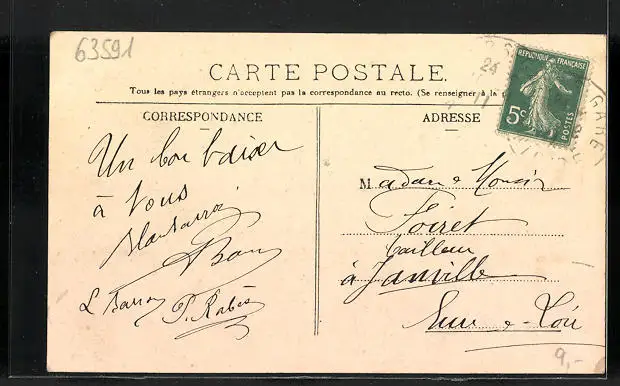 63591
CARTE POSTALE
Tous les pays étrangers n'acceptent pas la correspondance au recto. (Se renseigner à la
CORRESPONDANCE
ADRESSE
REPUBLIQUE FRANÇAISE
5c
POSTES
24
11
GARE
Un bon baiser
à tous
L Barra
P. Rabé
Madame Monsir
Poiret
Tailleur
à Janville
Eure-e-Loir
9,-